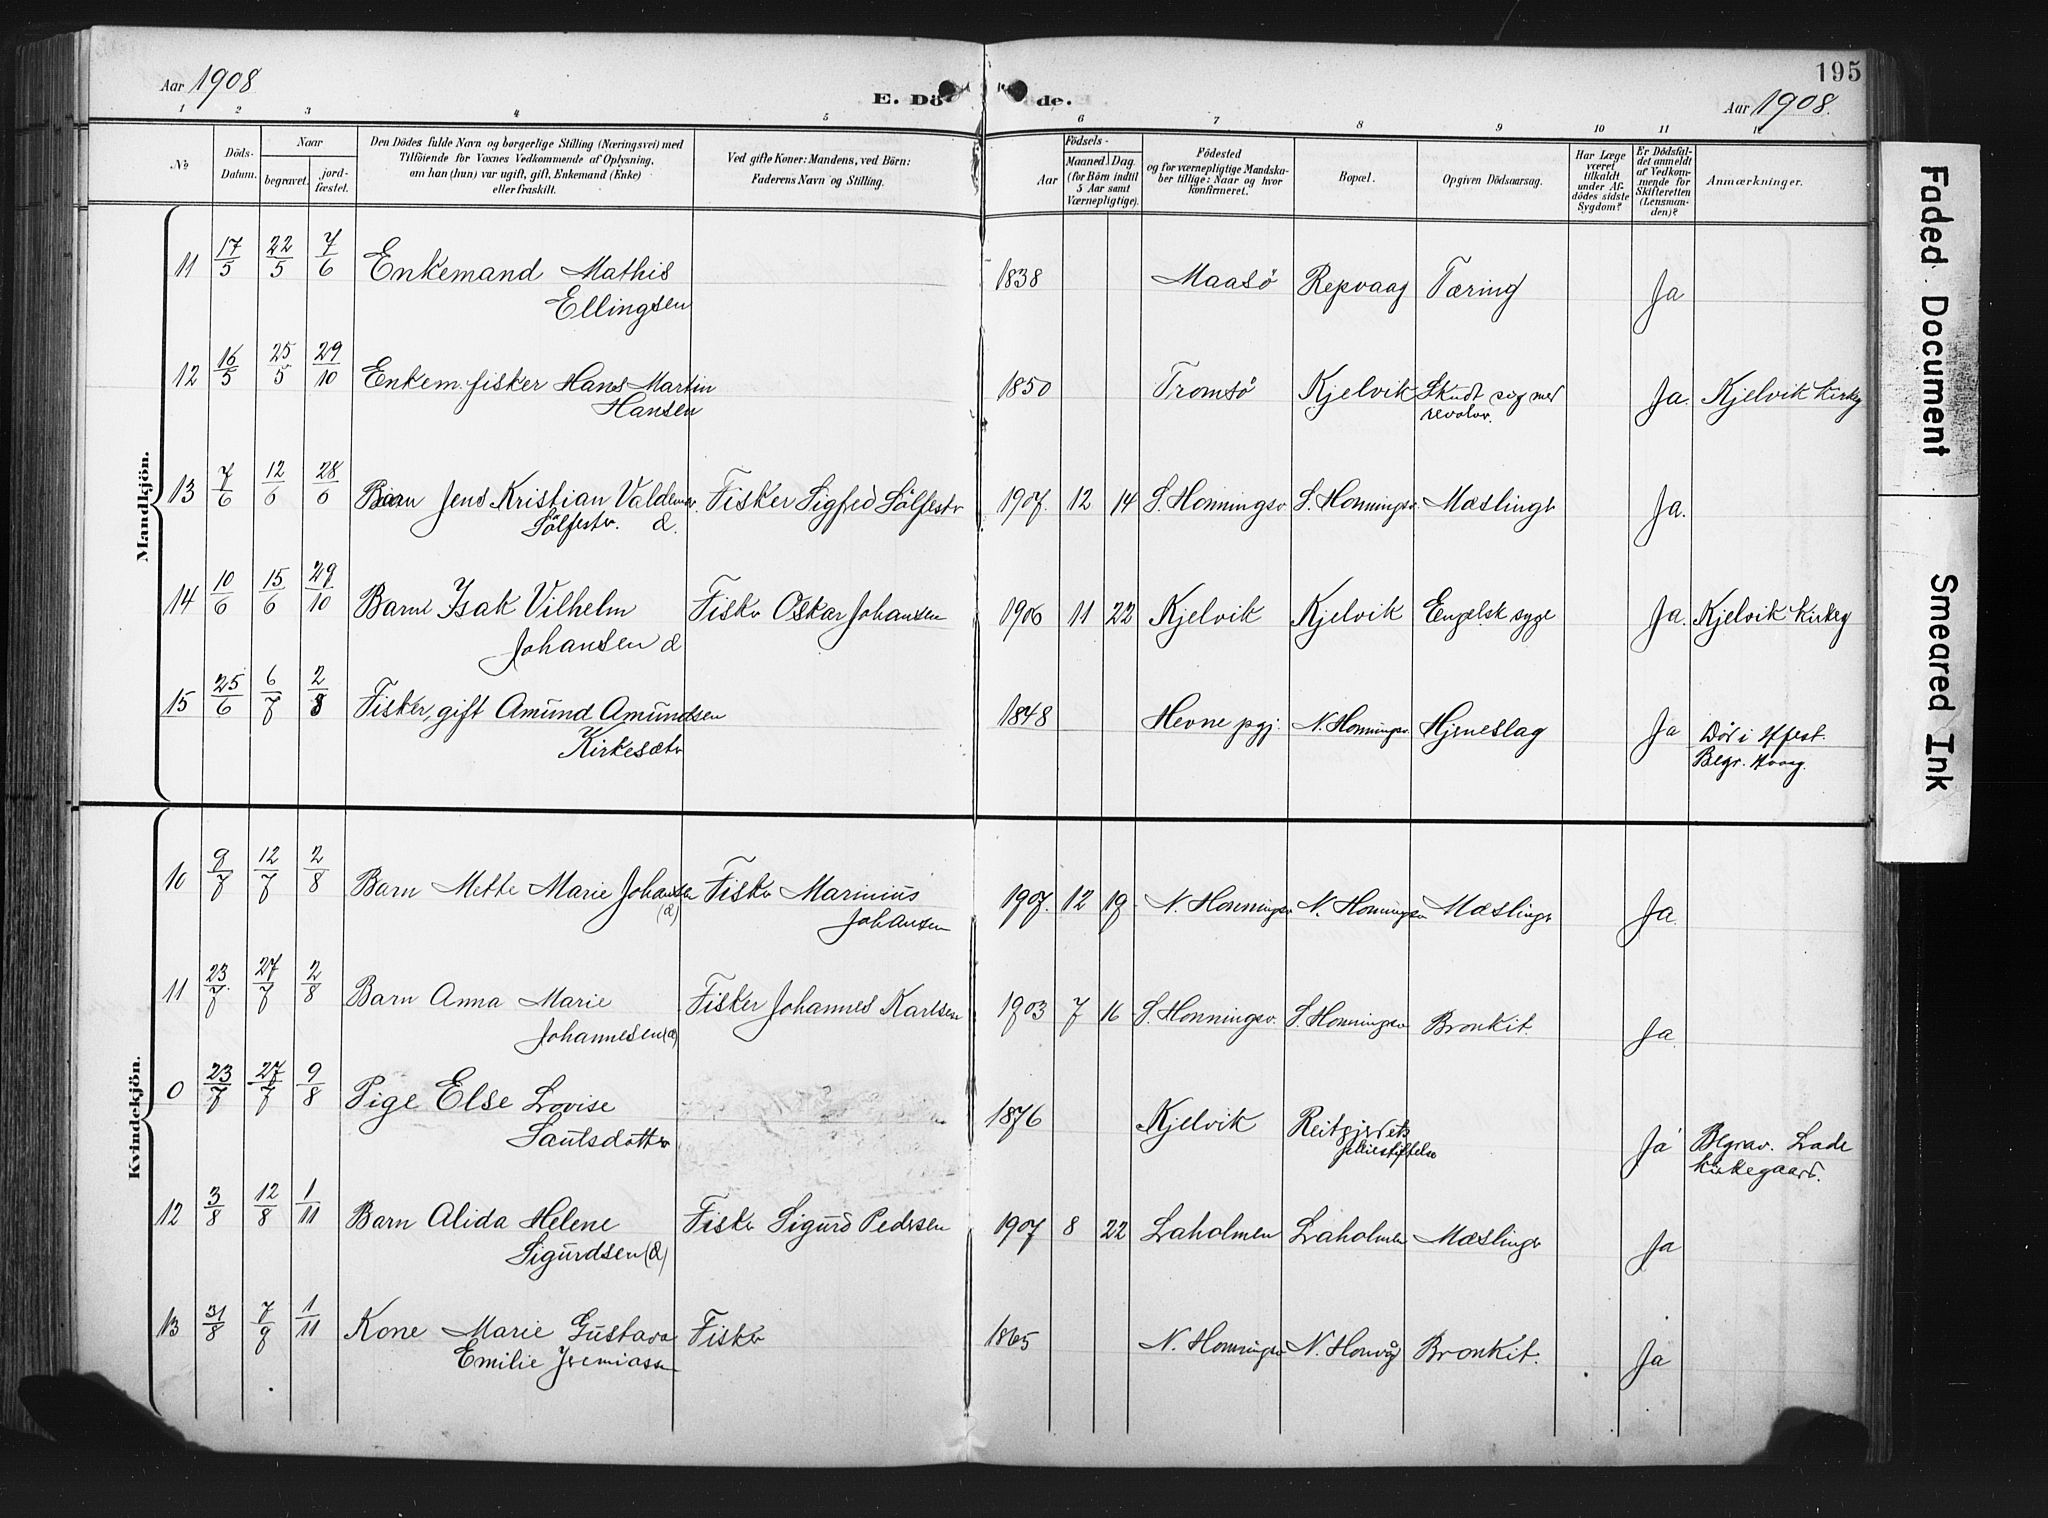 195
Aar 1908
E. Dö de.
Aar 1908.
1 2 3 4 5 6 7 8 9 10 11
No
Döds-Datum.
Naar
begravet.
jord-fæstet.
Den Dödes fulde Navn og borgerlige Stilling (Næringsvei) med
Tilföiende for Voxnes Vedkommende af Oplysning,
om han (hun) var ugift, gift, Enkemand (Enke)
eller fraskilt.
Ved gifte Koner: Mandens, ved Börn:
Faderens Navn og Stilling.
Födsels-
Aar
Maaned. Dag.
(for Börn indtil
5 Aar samt
Værnepligtige).
Födested
og for værnepligtige Mandska-
ber tillige: Naar og hvor
konfirmeret.
Bopæl.
Opgiven Dödsaarsag.
Har Læge
været
tilkaldt
under Af-
dödes sidste
Sygdom?
Er Dödsfal-
det anmeldt
af Vedkom-
mende for
Skifteretten
(Lensman-
den)?
Anmærkninger.
Mandkjön.
11 17/5 22/5 7/6 Enkemand Mathis 1838 Maasö Repvaag Tæring Ja
Ellingsen
12 16/5 25/5 29/10 Enkem. fisker Hans Martin 1850 Tromsö Kjelvik Skudt sig med Ja. Kjelvik Kirkeg
Hansen revolv.
13 7/6 12/6 28/6 Barn Jens Kristian Valdemar Fisker Sigfred Sölfestv 1907. 12 14 S. Honningsv. S. Honningsv. Mæslingr Ja.
Sölfestv. d.
14 10/6 15/6 29/10 Barn Isak Vilhelm Fiskr Oskar Johansen 1906 11 22 Kjelvik Kjelvik Engelsk syge Ja. Kjelvik Kirkeg
Johansen d
15 25/6 6/7 2/8 Fisker, gift Amund Amundsen 1848 Hevne pgj. N. Honningsv. Hjerneslag Ja
Kirkesætr
Begr.
Kvindekjön.
10 9/7 12/7 2/8 Barn Mette Marie Johansen Fiskr Marinius 1907. 12 19 N. Honningsv N. Honningsv Mæslingr Ja.
(d) Johansen
11 23/7 27/7 2/8 Barn Anna Marie Fisker Johannes Karlsen 1903 7 16 S. Honningsv. S. Honningsv Bronkit. Ja.
Johannesen (d)
0 23/7 27/7 9/8 Pige Else Lovise 1876 Kjelvik Reitgjerdets Ja Begrav. Lade
Sautsdottr pleiestiftelse Kirkegaard.
12 3/8 12/8 1/11 Barn Alida Helene Fiskr Sigurd Pedersen 1907 8 22 Laholmen Laholmen Mæslingr Ja
Sigurdsen (d)
13 31/8 7/9 1/11 Kone Marie Gustava Fiskr 1865 N. Honningsv N. Honvåg Bronkit. Ja
Emilie Jeremiassn
Faded Document
Smeared Ink